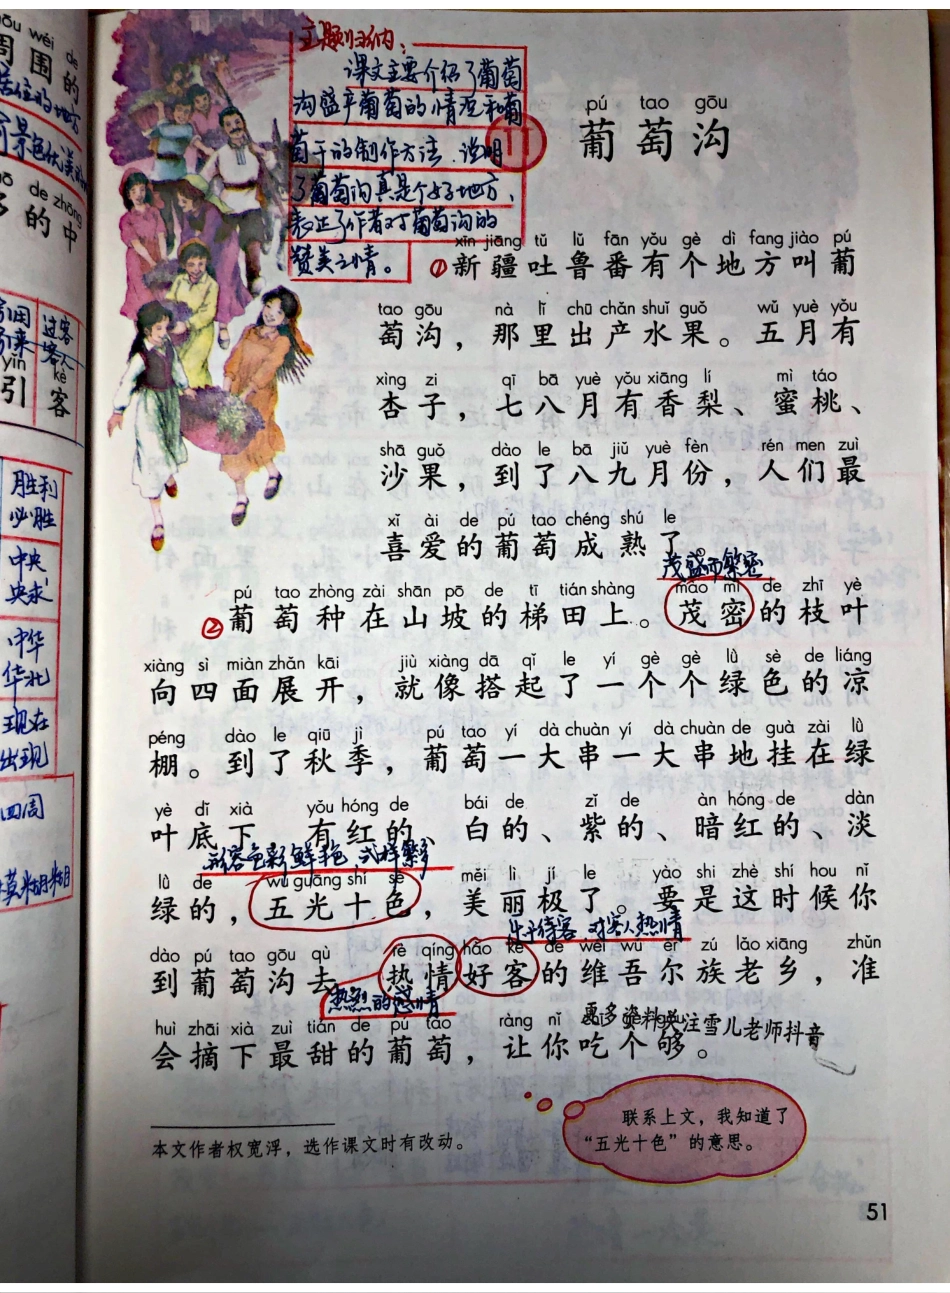 周围的
居住的地方
的中
胜利
必胜
中央
央求
中华
华北
现在
出现
四周
模糊
过客
客人
kè
yǐn
引 客
主题归纳：
课文主要介绍了葡萄
沟盛产葡萄的情况和葡
萄干的制作方法，说明
了葡萄沟真是个好地方，
表达了作者对葡萄沟的
赞美之情。
pú tao gōu
11 葡萄沟
xīn jiāng tǔ lǔ fān yǒu gè dì fang jiào pú
①新疆吐鲁番有个地方叫葡
tao gōu nà lǐ chū chǎn shuǐ guǒ wǔ yuè yǒu
萄沟，那里出产水果。五月有
xìng zi qī bā yuè yǒu xiāng lí mì táo
杏子，七八月有香梨、蜜桃、
shā guǒ dào le bā jiǔ yuè fèn rén men zuì
沙果，到了八九月份，人们最
xǐ ài de pú tao chéng shú le
喜爱的葡萄成熟了。
茂盛而繁密
pú tao zhòng zài shān pō de tī tián shàng mào mì de zhī yè
②葡萄种在山坡的梯田上。茂密的枝叶
xiàng sì miàn zhǎn kāi jiù xiàng dā qǐ le yí gè gè lǜ sè de liáng
向四面展开，就像搭起了一个个绿色的凉
péng dào le qiū jì pú tao yí dà chuàn yí dà chuàn de guà zài lǜ
棚。到了秋季，葡萄一大串一大串地挂在绿
yè dǐ xià yǒu hóng de bái de zǐ de àn hóng de dàn
叶底下，有红的、白的、紫的、暗红的、淡
形容色彩鲜艳，式样繁多
lǜ de wǔ guāng shí sè měi lì jí le yào shi zhè shí hou nǐ
绿的，五光十色，美丽极了。要是这时候你
乐于待客，对客人热情
dào pú tao gōu qù rè qíng hào kè de wéi wú ěr zú lǎo xiāng zhǔn
到葡萄沟去，热情好客的维吾尔族老乡，准
热烈的感情
huì zhāi xià zuì tián de pú tao ràng nǐ chī gè gòu
会摘下最甜的葡萄，让你吃个够。
更多资料关注雪儿老师抖音
联系上文，我知道了
“五光十色”的意思。
本文作者权宽浮，选作课文时有改动。
51